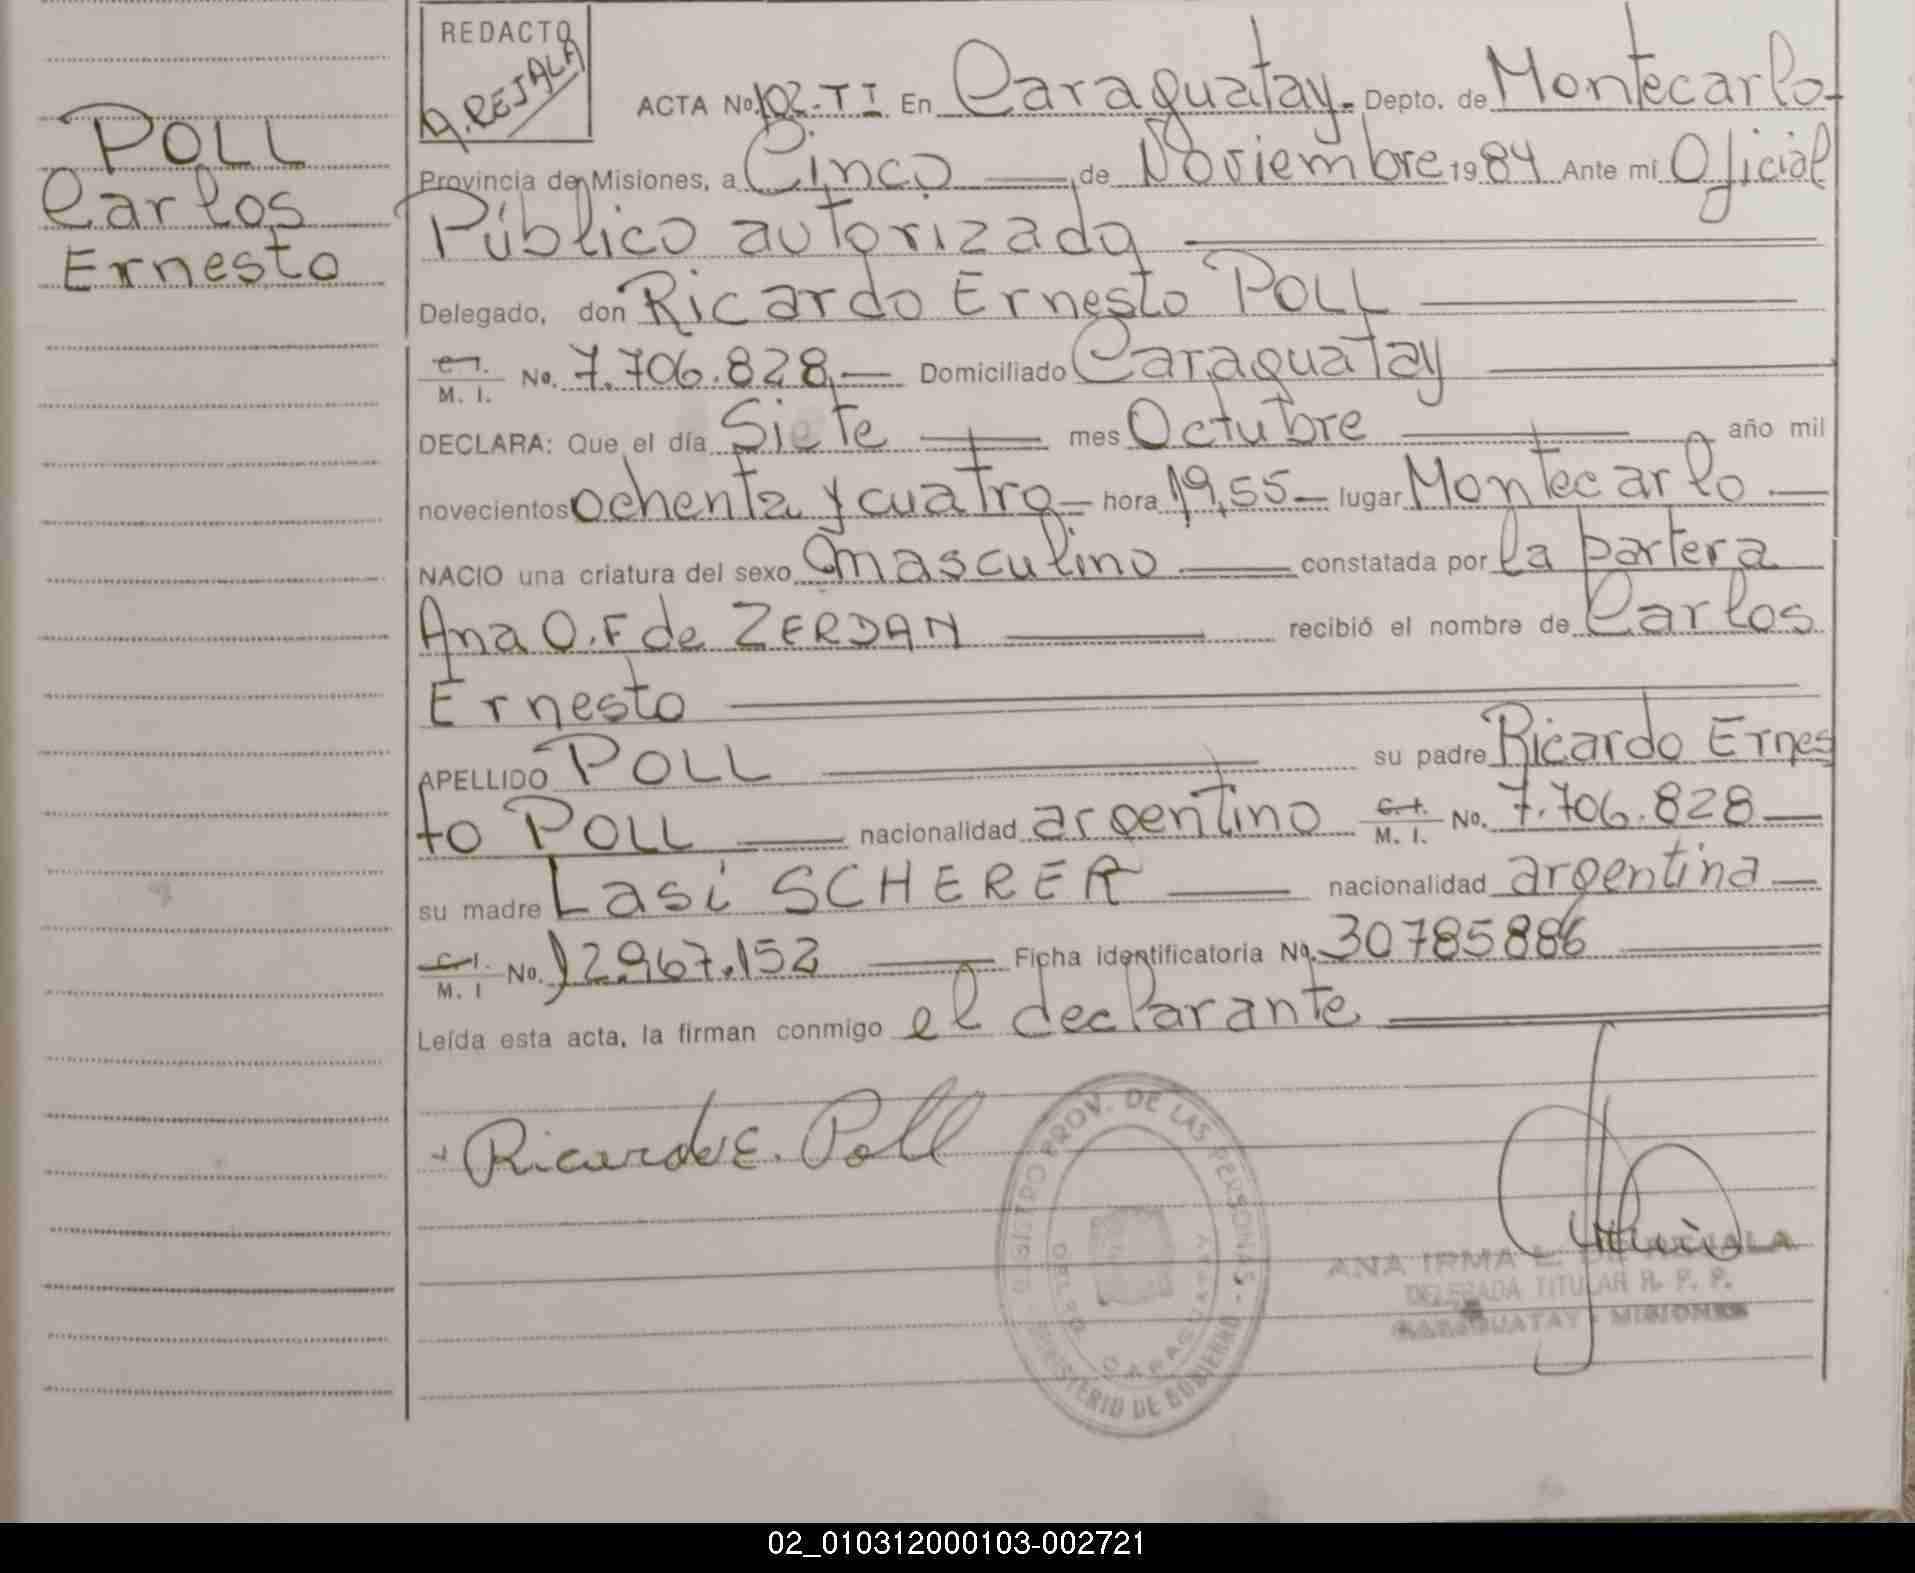 POLL
Carlos
Ernesto
REDACTO
A. REJALA
ACTA No. 102-TI En Caraguatay. Depto. de Montecarlo
Provincia de Misiones, a Cinco de Noviembre 1984 Ante mi Oficial
Público autorizado
Delegado, don Ricardo Ernesto POLL
C.I. M. I. No. 7.706.828 Domiciliado Caraguatay
DECLARA: Que el día Siete mes Octubre año mil
novecientos ochenta y cuatro hora 19,55 lugar Montecarlo
NACIO una criatura del sexo masculino constatada por la partera
Ana O. F de ZERDAN recibió el nombre de Carlos
Ernesto
APELLIDO POLL su padre Ricardo Ernes
to POLL nacionalidad argentino C.I. M. I. No. 7.706.828
su madre Lasi SCHERER nacionalidad argentina
C.I. M. I No. 12.967.152 Ficha identificatoria No. 30785886
Leída esta acta, la firman conmigo el declarante
Ricardo E. Poll
REGISTRO PROV. DE LAS PERSONAS
CARAGUATAY
MINISTERIO DE GOBIERNO
ANA IRMA L. DE REJALA
DELEGADA TITULAR R. P. P.
CARAGUATAY - MISIONES
02_010312000103-002721